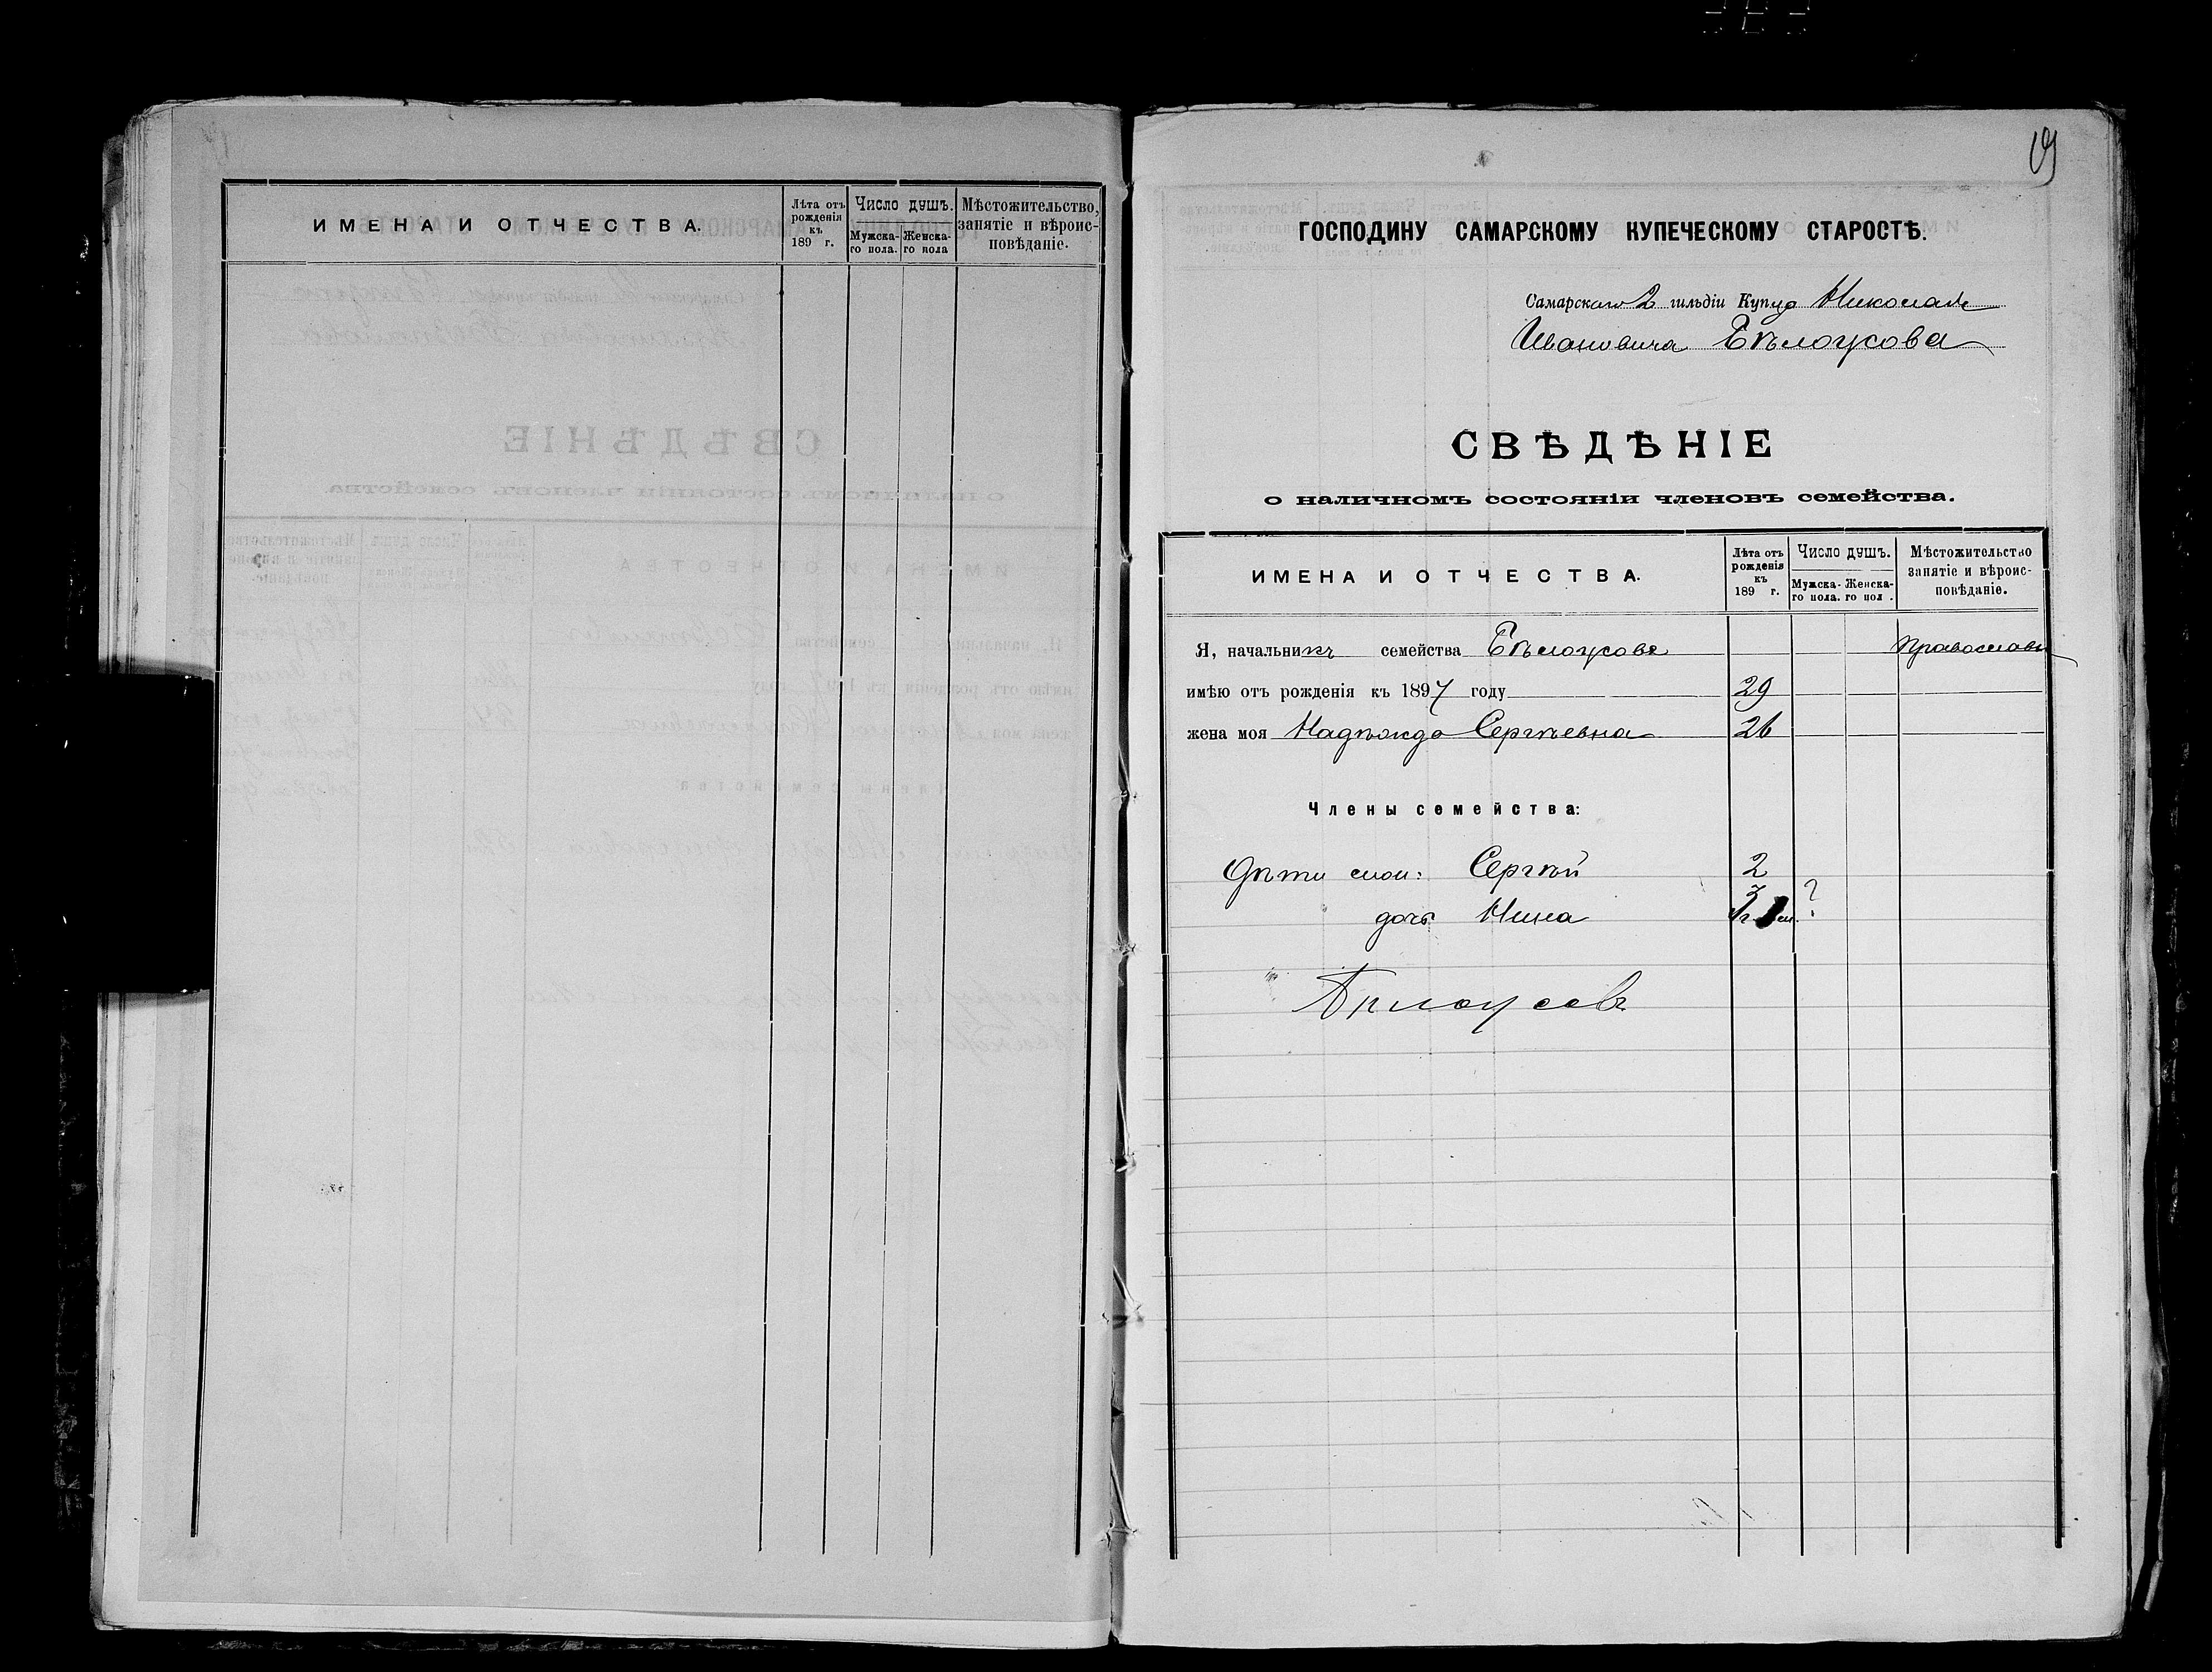 ИМЕНА И ОТЧЕСТВА.
Лѣта отъ рожденія къ 189 г.
Число душъ.
Мужска-го пола.
Женска-го пола
Мѣстожительство, занятіе и вѣроис-повѣданіе.
19
ГОСПОДИНУ САМАРСКОМУ КУПЕЧЕСКОМУ СТАРОСТѢ.
Самарскаго 2 гильдіи Купца Николая
Ивановича Бѣлоусова
СВѢДѢНІЕ
о наличномъ состояніи членовъ семейства.
ИМЕНА И ОТЧЕСТВА.
Лѣта отъ рожденія къ 189 г.
Число душъ.
Мужска-го пола.
Женска-го пол .
Мѣстожительство занятіе и вѣроис-повѣданіе.
Я, начальникъ семейства Бѣлоусовъ Православн
имѣю отъ рожденія къ 1897 году 29
жена моя Надежда Сергѣевна 26
Члены семейства:
Дѣти мои: Сергѣй 2
дочь Нина ?
Бѣлоусовъ